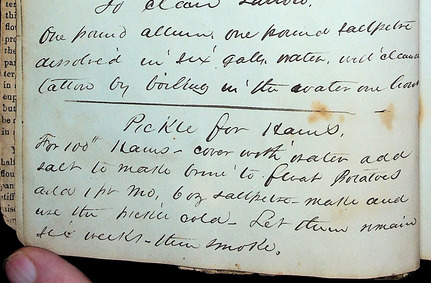 To clean Tallow.
One pound allum, one pound saltpetre
dissolved in six galls. water, will clean
tallow by boiling in the water one hour
Pickle for Hams.
For 100lb Hams - cover with water add
salt to make brine to float Potatoes
add 1 pt Mo, 6 oz saltpetre - make and
use the pickle cold - Let them remain
six weeks - then smoke.